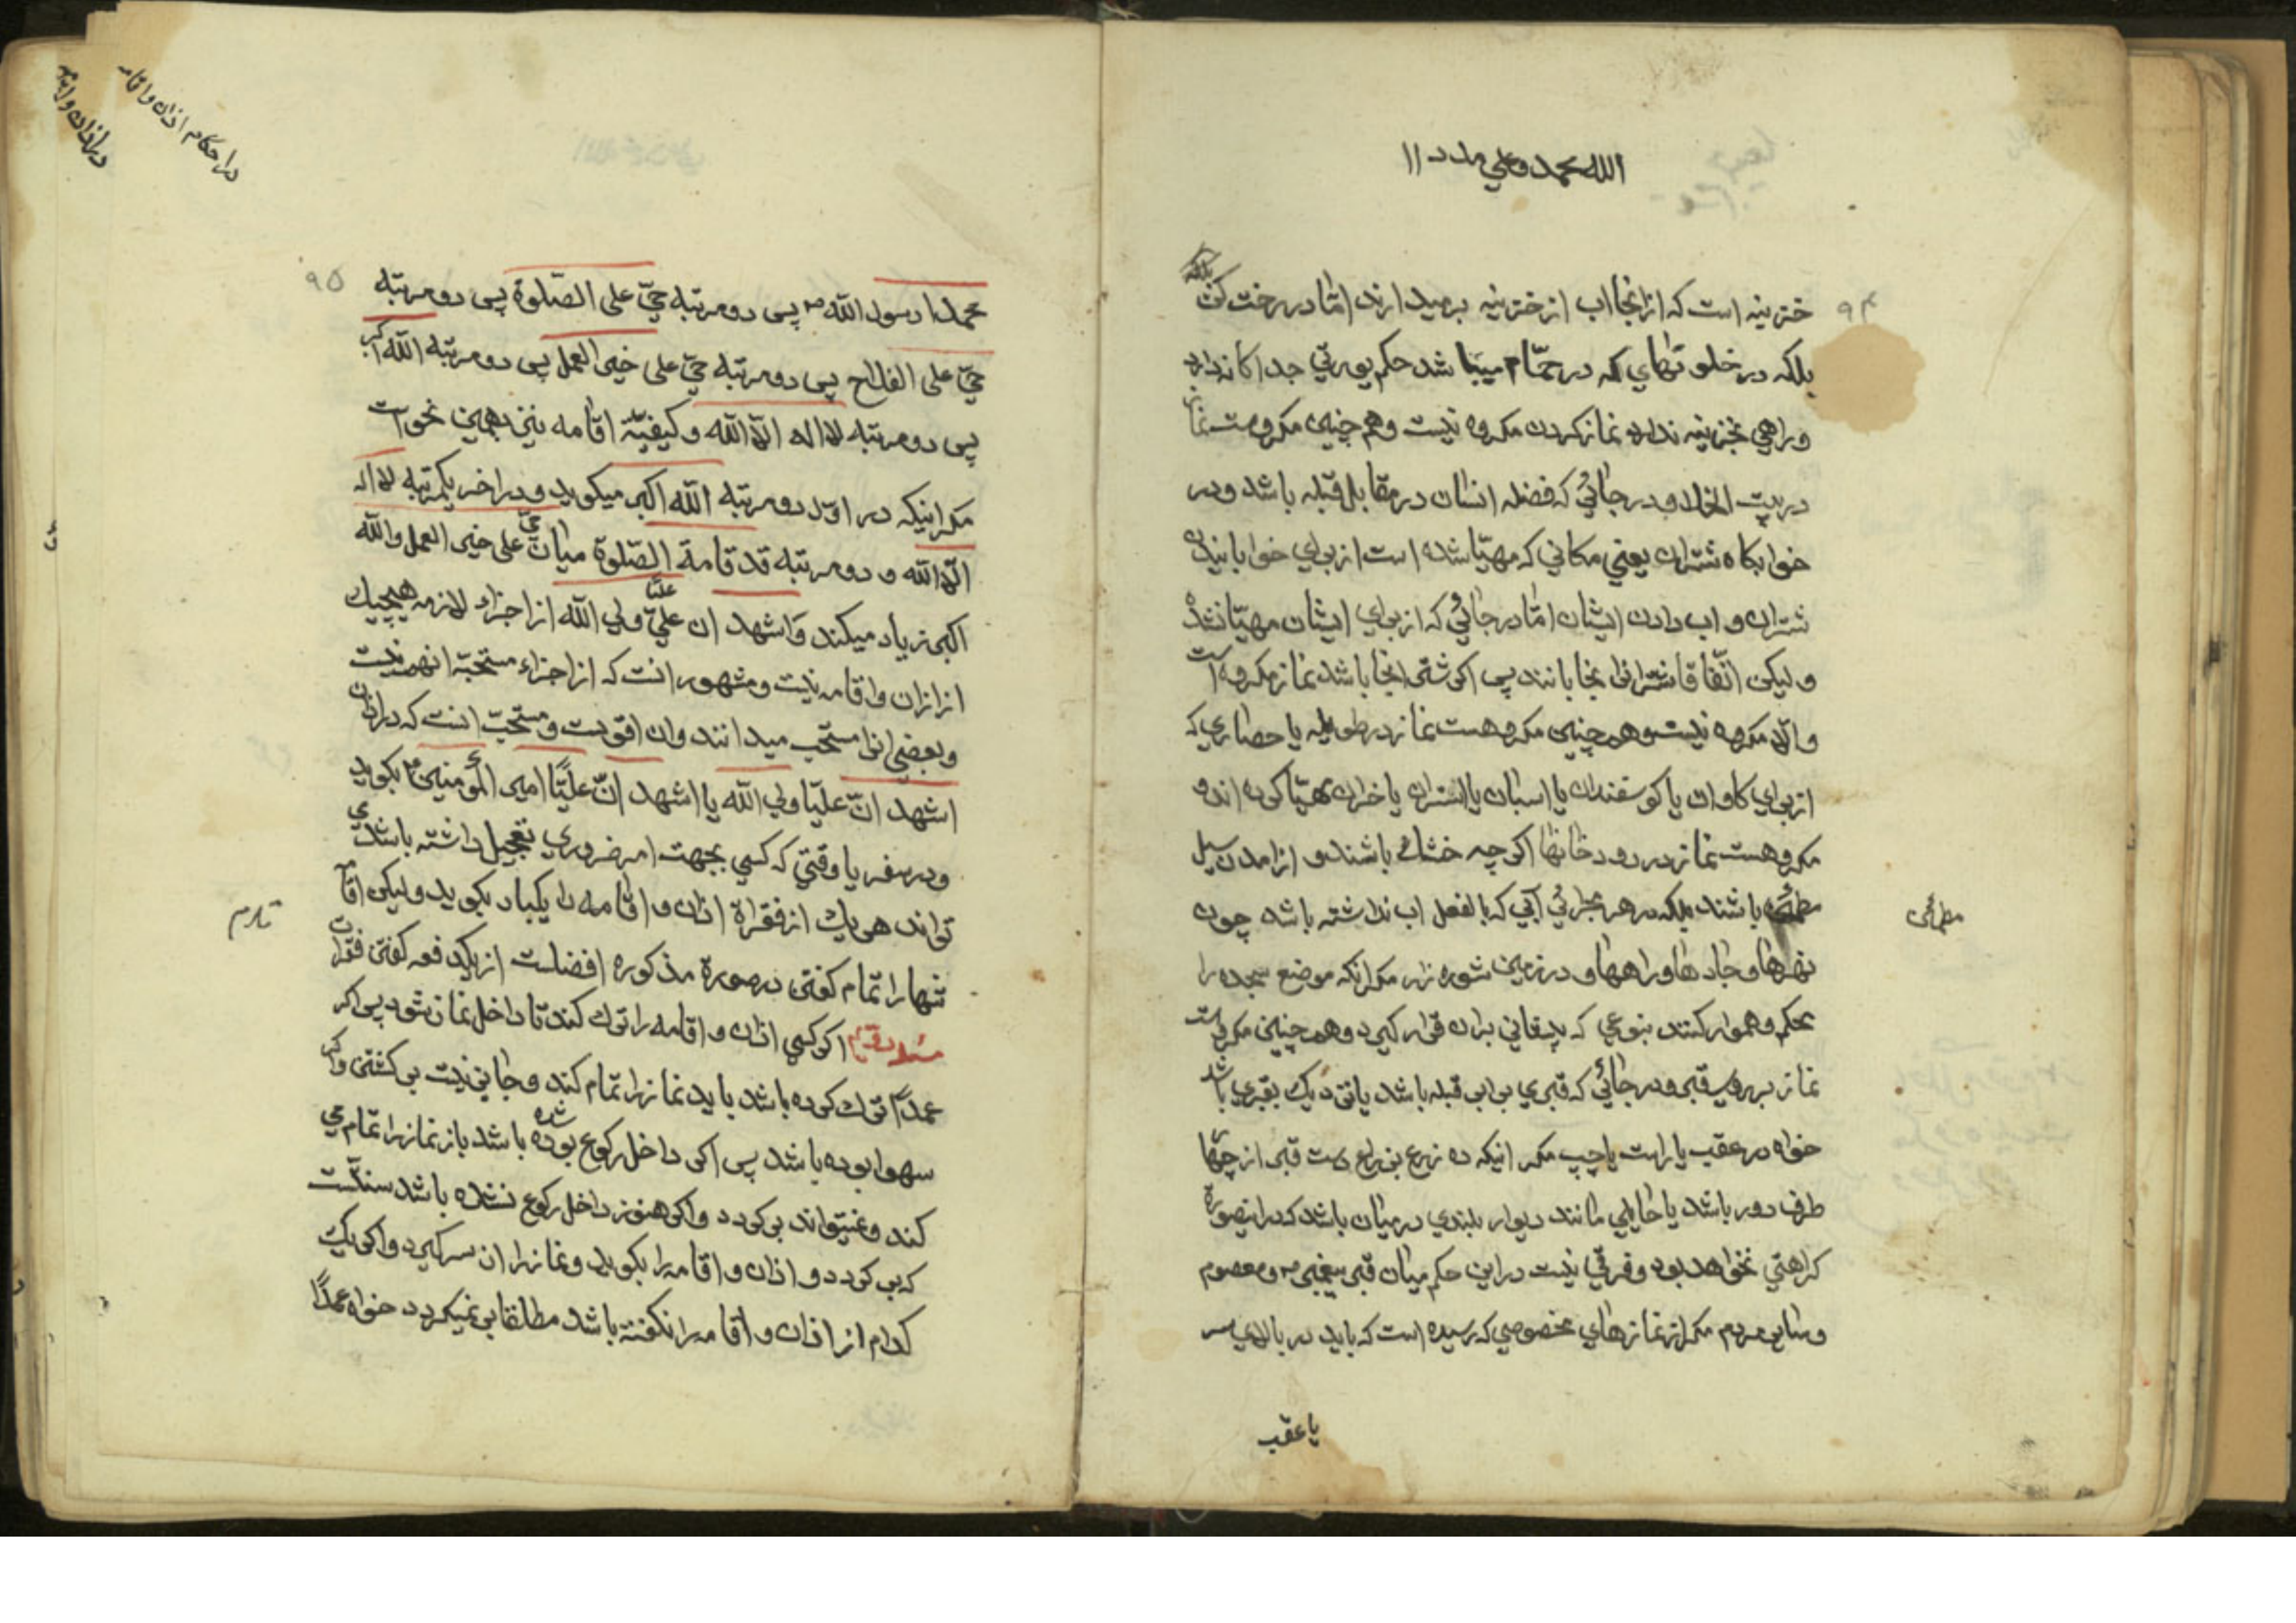 الله محمد وعلي مدد ۱۱
۹۴
خزینه است که ازانجا اب از خزینه برمیدارند امّا در رخت کن
بلکه در خلوتهای که در حمّام میباشد حکم بیوتی جداکانه دارد
وراهی بخزینه ندارد نماز کردن مکروه نیست وهم چنین مکروهست نماز
در بیت الخلا و در جائی که فضله انسان در مقابل قبله باشد و در
خوابکاه شتران یعنی مکانی که مهیّا شده است از برای خوابانیدن
شتران و اب دادن ایشان امّا در جائی که از برای ایشان مهیّا نشده
ولیکن اتّفاقا شتران انجا بانند پس اکر شتر انجا باشد نماز مکروه است
والّا مکروه نیست وهم چنین مکروهست نماز در طویله یا حصاری که
از برای کاوان یا کوسفندان یا اسبان یا استران یا خران مهیّا کرده اند و
مکروهست نماز در رودخانها اکرچه خشک باشند و از امدن سیل
مطمئن باشند بلکه در هر مجرائی آبی که بالفعل اب نداشته باشد چون
مطمئن
نهرها و جادها و راهها و در زمین شوره زار مکر انکه موضع سجده را
محکم وهموار کنند بنوعی که پیشانی بران قرار کیرد وهم چنین مکروهست
نماز بر روی قبر و در جائی که قبری برابر قبله باشد یا نزدیک بقبری باشد
خواه در عقب یا راست یا چپ مکر انیکه ده زرع بذراع دست قبر از چهار
طرف دور باشد یا حایلی مانند دیوار بلندی درمیان باشد که در اینصورة
کراهتی نخواهد بود و فرقی نیست در این حکم میان قبر پیغمبر ص و معصوم
و سایر مردم مکر از نمازهای مخصوصی که رسیده است که باید در بالای سر
یا عقب
در احکام اذان و اقامه
در اذان و اقامه
۹۵
محمدا رسول الله ص پس دو مرتبه حیّ علی الصّلوة پس دو مرتبه
حیّ علی الفلاح پس دو مرتبه حیّ علی خیر العمل پس دو مرتبه الله اکبر
پس دو مرتبه لا اله الّا الله و کیفیّة اقامه نیز بهمین نحو است
مکر انیکه در اوّل دو مرتبه الله اکبر میکوید و در اخر یکمرتبه لا اله
الّا الله و دو مرتبه قد قامة الصّلوة میان حیّ علی خیر العمل والله
اکبر زیاد میکند و اشهد ان علیّ علیّا ولی الله از اجزاء لازمه هیچیک
از ازان و اقامه نیست و مشهور انست که از اجزاء مستحبّة انهم نیست
وبعضی انرا مستحب میدانند وان اقویست و مستحبّ انست که در اذان
اشهد انّ علیّا ولی الله یا اشهد انّ علیًّا امیر المؤمنین ع بکوید
و در سفر یا وقتی که کسی بجهت امر ضروری تعجیل داشته باشد می
تواند هر یک از فقراة اذان و اقامه را یکبار بکوید ولیکن اقامه
تنها را تمام کفتن در صورة مذکوره افضلست از یکدفعه کفتن فقرات
مسئله اکر کسی اذان و اقامه را ترک کند تا داخل نماز شود پس اکر
عمداً ترک کرده باشد باید نماز را تمام کند و جایز نیست برکشتن واکر
سهوا بوده باشد پس اکر داخل رکوع بوده شده باشد باز نماز را تمام می
کند و نمیتواند برکردد و اکر هنوز داخل رکوع نشده باشد سنّت است
که برکردد و اذان و اقامه را بکوید و نماز را از سر کیرد و اکر یک
کدام از اذان و اقامه را نکفته باشد مطلقا برنمیکردد خواه عمداً